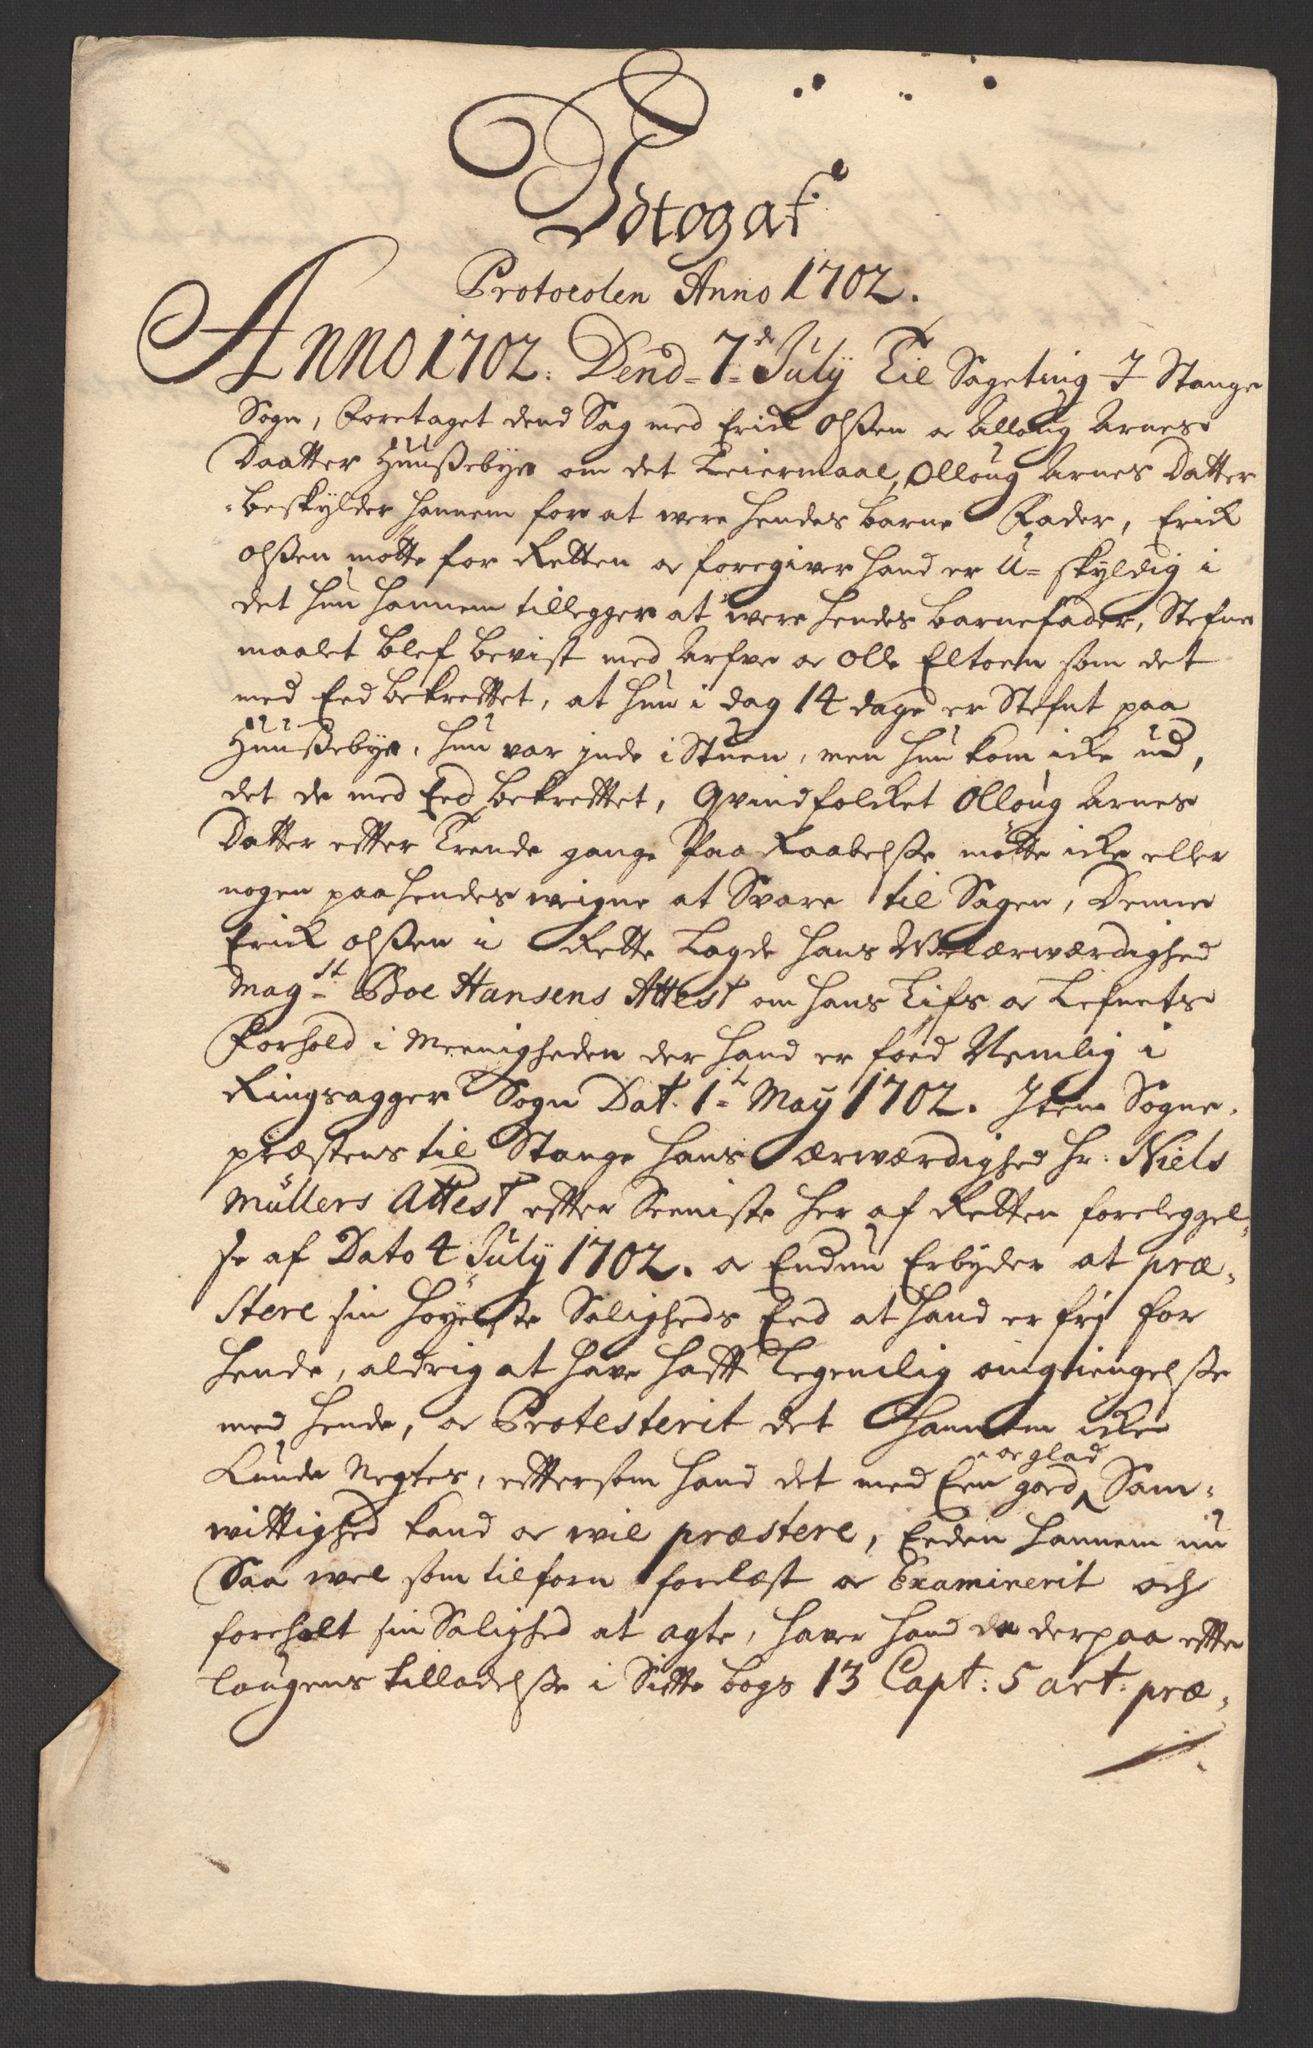 Udtog af
Protocolen Anno 1702.
Anno 1702. Dend 7de July Til Sageting I Stange
Sogn, Foretaget dend Sag med Erick Olßen oc Alloug Arnes
Daatter Huußebye om det Leiermaal, Olloug Arnes Datter
beskylder hannem for at were hendes barne Fader, Erick
Olßen møtte for Retten oc foregiver hand er U-skyldig i
det hun hannem tillegger at were hendes barnefader, Stefne
maalet blef bevist med Arfve oc Olle Eltoen som det
med Eed bekrefftet, at hun i dag 14 dage er Stefnt paa
Huußebye, hun var inde i Stuen, men hun kom icke ud,
det de med Eed bekrefftet, Qvindfolcket Olloug Arnes
Datter effter Trende gange Paa Raabelße møtte icke eller
nogen paa hendes weigne at Svare til Sagen, Denne
Erick Olßen i Rette Lagde hans Welærwærdighed
Mag:st Boe Hansens Attest om hans Lifs oc Lefnets
Forhold i Meenigheden der hand er fød Nemlig i
Ringsagger Sogn Dat. 1t May 1702. Item Sogne-
præstens til Stange hans ærwærdighed hr: Niels
Müllers Attest effter Seeniste her af Retten foreleggel-
se af Dato 4 July 1702. oc Endnu Erbyder at præ-
stere sin høyeste Saligheds Eed at hand er frj for
hende, aldrig at have hafft Legemlig omgiengelße
med hende, oc Protesterit det hannem icke
kunde Negtes, efftersom hand det med Een goed oc glad Sam-
wittighed kand oc wil præstere, Eeden hannem nu
Saa wel som tilforn forelæst oc Examinerit och
foreholt sin Salighed at agte, haver hand da derpaa effter
laugens tilladelße i Siette bogs 13 Capt: 5 art. præ-